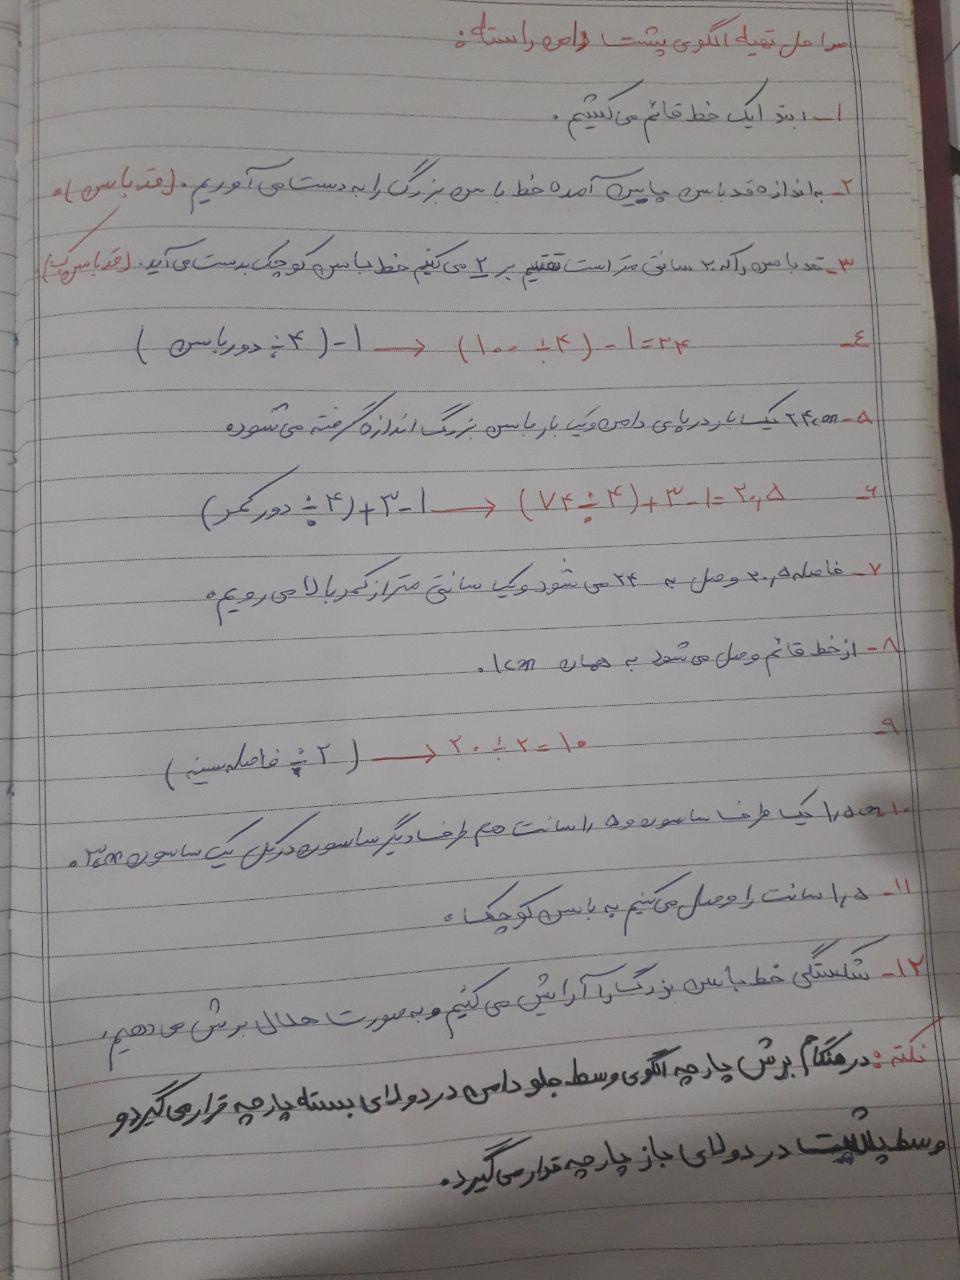 مراحل تهیه الگوی پشت دامن راسته:
۱- ابتدا یک خط قائم می‌کشیم.
۲- به اندازه قد باسن پایین آمده خط باسن بزرگ را به دست می‌آوریم. (قد باسن).
۳- قد باسن را که ۲۰ سانتی متر است تقسیم بر ۲ می‌کنیم خط باسن کوچک بدست می‌آید. (قد باسن ک)
۴- (دور باسن ÷ ۴) - ۱ → (۱۰۰ ÷ ۴) - ۱ = ۲۴
۵- ۲۴cm یک بار در پایی دامن و یک بار باسن بزرگ اندازه گرفته می‌شود.
۶- (دور کمر ÷ ۴) + ۳ - ۱ → (۷۴ ÷ ۴) + ۳ - ۱ = ۲۰,۵
۷- فاصله ۲۰,۵ وصل به ۲۴ می شود و یک سانتی متر از کمر بالا می رویم.
۸- از خط قائم وصل می‌شود به همان ۱cm.
۹- (فاصله سینه ÷ ۲) → ۲۰ ÷ ۲ = ۱۰
۱۰- ۱,۵cm یک طرف ساسون و ۱,۵ سانت هم طرف دیگر ساسون در کل یک ساسون ۳cm.
۱۱- ۱,۵ سانت را وصل می‌کنیم به باسن کوچک.
۱۲- شکستگی خط باسن بزرگ را آرایش می‌کنیم و به صورت هلال برش می دهیم.
نکته: در هنگام برش پارچه الگوی وسط جلو دامن در دولای بسته پارچه قرار می‌گیرد و
وسط پشت در دولای باز پارچه قرار می‌گیرد.